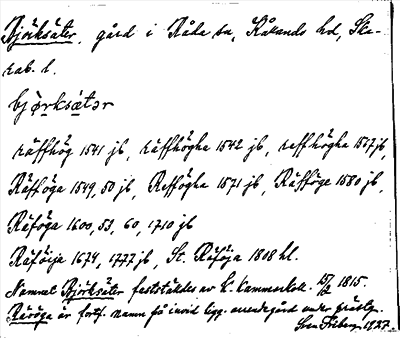 Björksäter, gård i Råda sn, Kållands hd, Ska-
rab. l.
bjö̱rksä̀tər
räffhög 1541 jb, räffhögha 1542 jb, reffhögha 1567 jb,
Räfföga 1549, 50 jb, Reffögda 1571 jb, Räfföge 1580 jb,
Räföga 1600, 53, 60, 1710 jb
Räföija 1674, 1777 jb, St. Räföja 1818 hl.
Namnet Björksäter fastställdes av k. Kammarkoll. 15/2 1815.
Rävöga är fortf. namn på invid ligg. arrendegård under
Sven 1927.